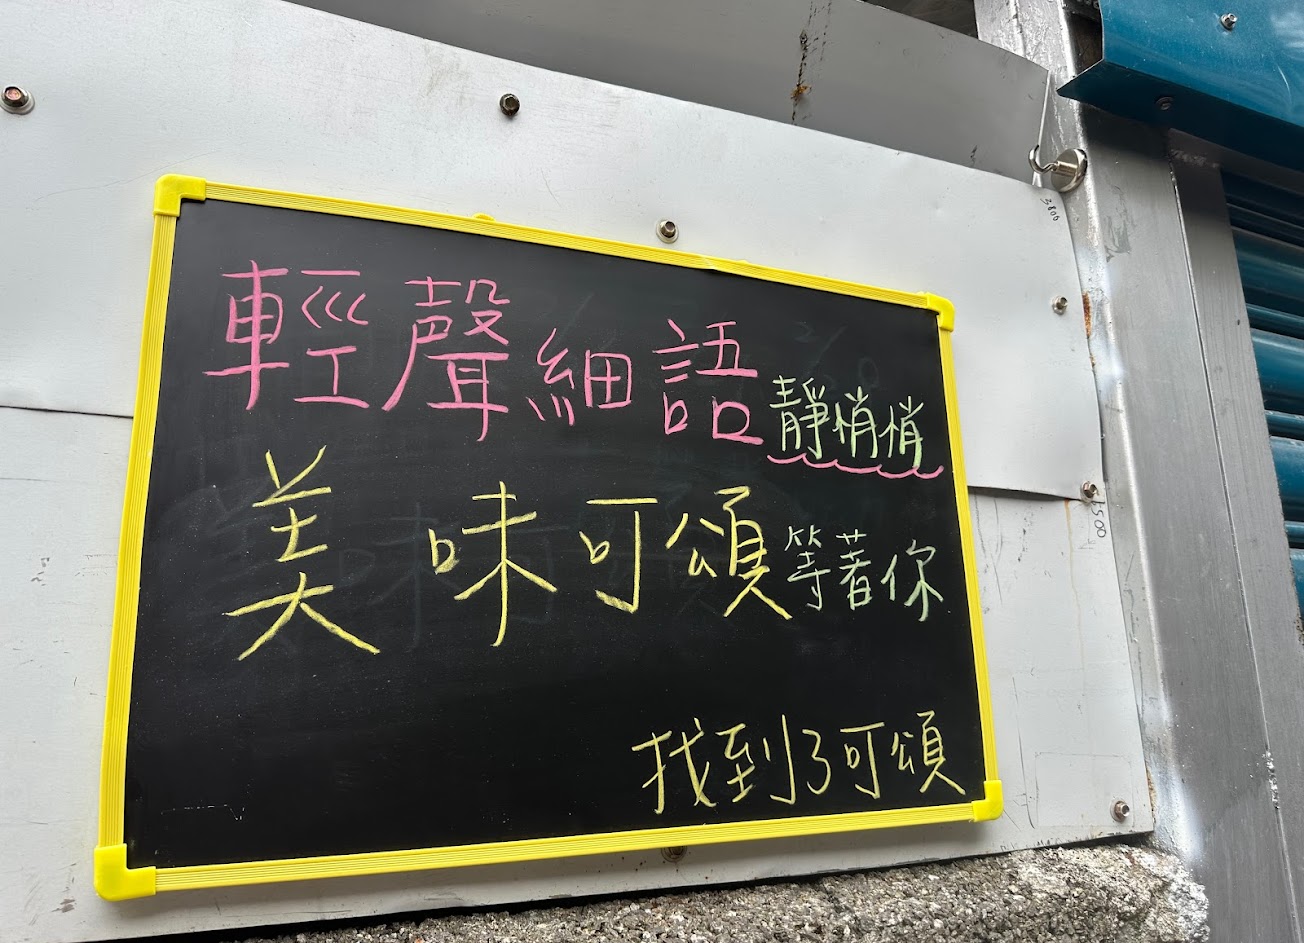 輕聲細語靜悄悄
美味可頌等著你
找到了可頌
3806
1500